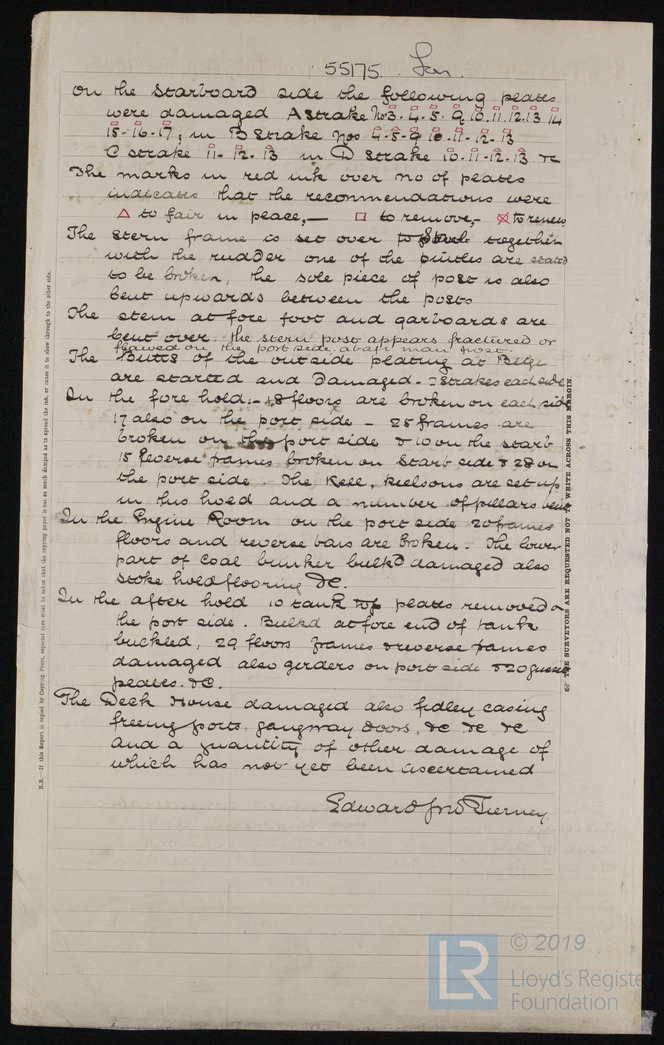 55175. Lon.
On the Starboard side the following plates
were damaged A strake Nos 3. 4. 5. 9 10. 11. 12. 13 14
15-16-17, in B strake Nos 4-5-9 10-11-12-13
C strake 11-12-13 in D strake 10-11-12-13 &c
The marks in red ink over no of plates
indicates that the recommendations were
△ to fair in peace,— □ to remove,- to renew
The stern frame is set over to starb together
with the rudder one of the pintles are stated
to be broken, the sole piece of post is also
bent upwards between the posts
The stem at fore foot and garboards are
bent over. the stern post appears fractured or
flawed on the port side abaft main post.
The Butts of the outside plating at Bilge
are started and damaged - strakes each side
In the fore hold:- 18 floors are broken on each side
17 also on the port side - 25 frames are
broken on the port side & 10 on the starb
15 Reverse frames broken on Starb side & 28 on
the port side. The Keel, keelsons are set up
in this hold and a number of pillars bent.
In the Engine Room on the port side 20 frames
floors and reverse bars are broken. The lower
part of Coal bunker bulkd damaged also
stoke hold flooring &c.
In the after hold 10 tank top plates removed on
the port side. Bulkd at fore end of tank
buckled, 29 floors frames & reverse frames
damaged also girders on port side & 20 gusset
plates. &c.
The Deck House damaged also fidley casing
freeing ports, gangway doors, &c &c &c
and a quantity of other damage of
which has not yet been ascertained
Edward Jno Tierney.
N.B.—If this Report is copied by Copying Press, especial care must be taken that the copying paper is not so much damped as to spread the ink, or cause it to show through to the other side.
THE SURVEYORS ARE REQUESTED NOT TO WRITE ACROSS THIS MARGIN.
LR
© 2019
Lloyd's Register
Foundation